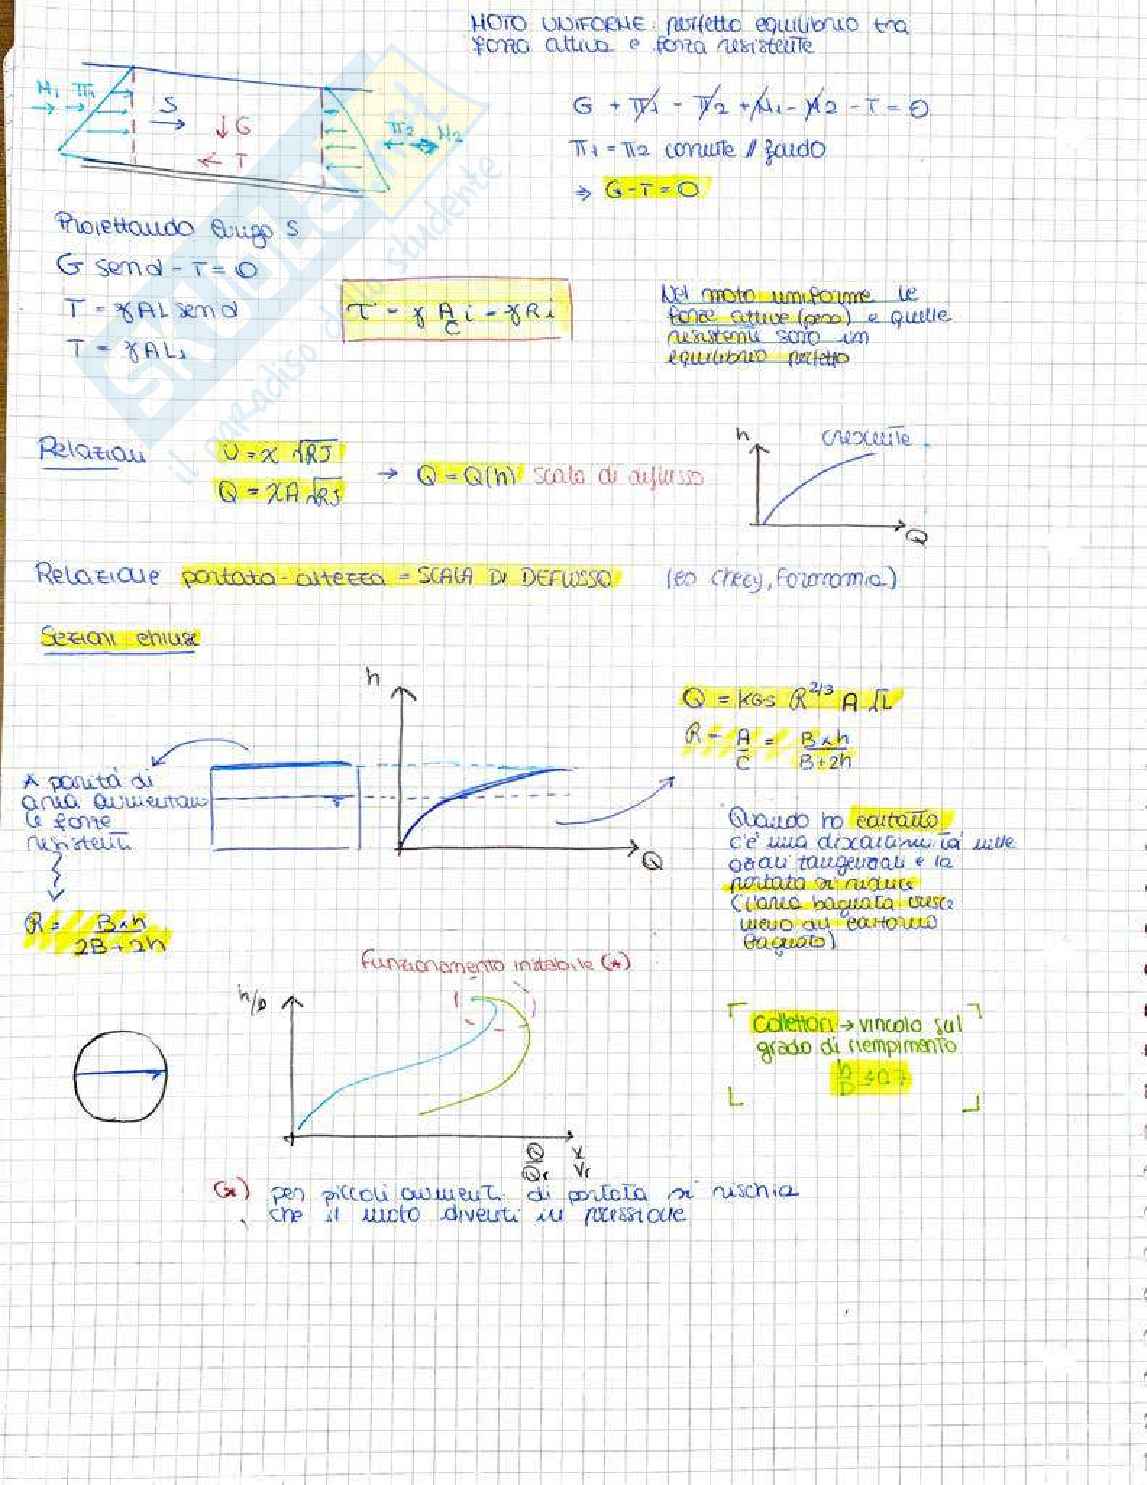 MOTO UNIFORME: perfetto equilibrio tra
forza attiva e forza resistente
M₁ Π₁
S
↓G
← T
Π₂ M₂
G + Π₁ - Π₂ + M₁ - M₂ - T = 0
Π₁ = Π₂ corrente // fondo
⇒ G-T=0
Proiettando lungo S
G senα - T = 0
T = γAL senα
T = γALi
τ = γ A/C i = γRi
Nel moto uniforme le
forze attive (peso) e quelle
resistenti sono in
equilibrio perfetto
SKUOLA.net
il paradiso dello studente
Relazioni
U = χ √RJ
Q = χA √RJ
→ Q = Q(h) scala di deflusso
h
crescente
Q
Relazione portata-altezza = SCALA DI DEFLUSSO (eq Chezy, Foronomia)
Sezioni chiuse
h
Q
Q = KGS R^2/3 A √i
R = A/C = B×h / B+2h
A parità di
area aumentano
le forze
resistenti
R = B×h / 2B+2h
Quando ho contatto
c'è una discontinuità nelle
tangenziali e la
portata si riduce
(l'area bagnata cresce
meno del contorno
bagnato)
Funzionamento instabile (*)
h/D
Q/Qr V/Vr
Collettori → vincolo sul
grado di riempimento
h/D ≤ 0,7
(*) per piccoli aumenti di portata si rischia
che il moto diventi in pressione